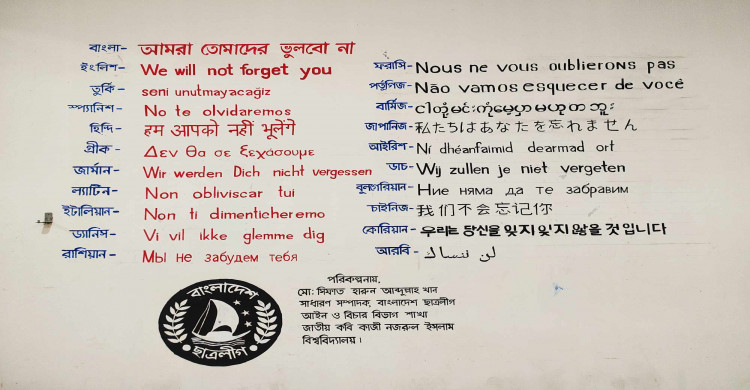 বাংলা- আমরা তোমাদের ভুলবো না
ইংলিশ- We will not forget you
তুর্কি- seni unutmayacağiz
স্প্যানিশ- No te olvidaremos
হিন্দি- हम आपको नहीं भूलेंगे
গ্রীক- Δεν θα σε ξεχάσουμε
জার্মান- Wir werden Dich nicht vergessen
ল্যাটিন- Non obliviscar tui
ইটালিয়ান- Non ti dimenticheremo
ড্যানিস- Vi vil ikke glemme dig
রাশিয়ান- Мы не забудем тебя
ফরাসি- Nous ne vous oublierons pas
পর্তুগিজ- Não vamos esquecer de você
বার্মিজ-
জাপানিজ- 私たちはあなたを忘れません
আইরিশ- Ní dhéanfaimid dearmad ort
ডাচ- Wij zullen je niet vergeten
বুলগেরিয়ান- Ние няма да те забравим
চাইনিজ- 我们不会忘记你
কোরিয়ান- 우리는 당신을 잊지 잊지 않을 것 입니다
আরবি- لن ننساك
বাংলাদেশ
ছাত্রলীগ
পরিকল্পনায়,
মো: সিফাত হারুন আব্দুল্লাহ খান
সাধারণ সম্পাদক, বাংলাদেশ ছাত্রলীগ
আইন ও বিচার বিভাগ শাখা
জাতীয় কবি কাজী নজরুল ইসলাম
বিশ্ববিদ্যালয়।